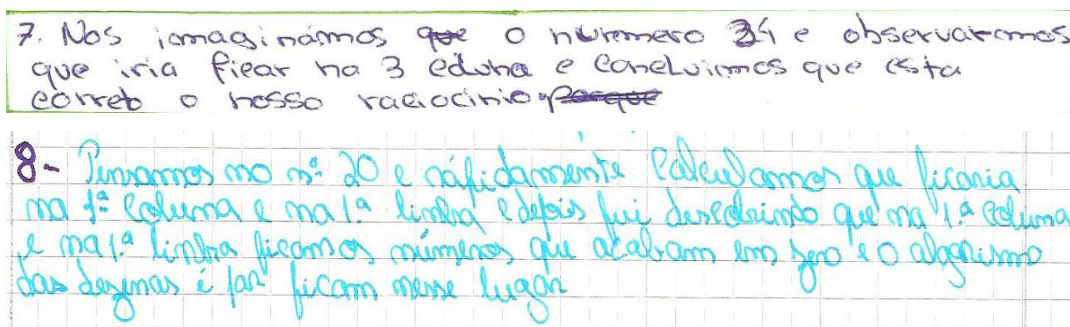 7. Nós iamaginámos que o nurmero 34 e observaramos
que iria ficar na 3 coluna e concluimos que esta
correto o nosso raciocinio, porque
8- Pensamos no nº 20 e rápidamente calculamos que ficaria
na 1ª coluna e na 1.ª linha e depois fui descobrindo que na 1.ª coluna
e na 1.ª linha ficam os números que acabam em zero e o algarismo
das dezenas é par ficam nesse lugar